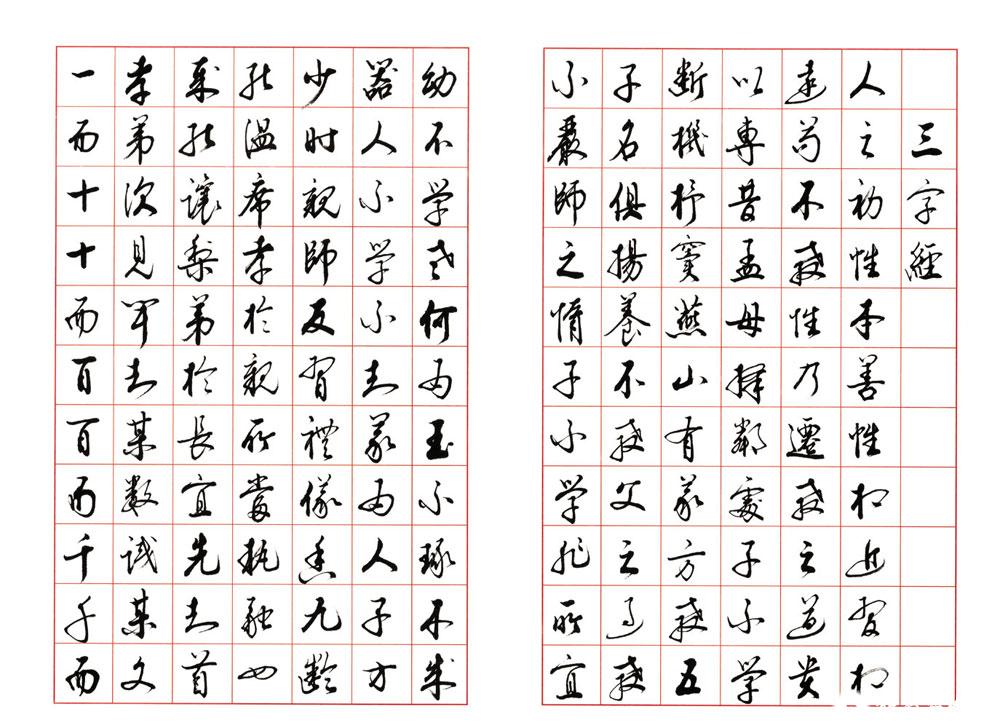 三字經
人之初性本善性相近習相
遠苟不教性乃遷教之道貴
以專昔孟母擇鄰處子不学
斷機杼竇燕山有義方教五
子名俱揚養不教父之過教
不嚴師之惰子不学非所宜
幼不学老何為玉不琢不成
器人不学不知義為人子方
少时親師友習禮儀香九齡
能温席孝於親所當執融四
歲能讓梨弟於長宜先知首
孝弟次見聞知某數識某文
一而十十而百百而千千而